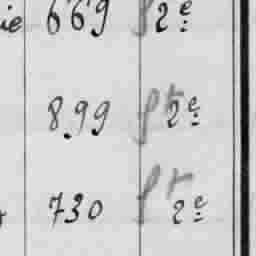 ie 669 ft 2e
899 ft 2e
730 ft 2e